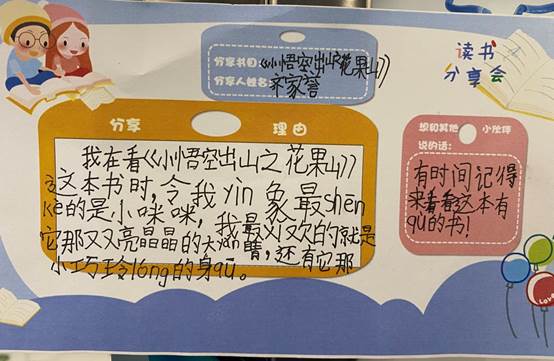 读书
分享会
分享书目:《小悟空出山之花果山》
分享人姓名:齐家誉
分享 理由
我在看《小小悟空出山之花果山》
这本书时,令我yin象最shēn
kè的是小咪咪,我最刈欢的就是
它那双又亮晶晶的大yǎn睛,还有它那
小巧玲lóng的身qū。
想和其他小伙伴
说的话:
有时间记得
来看看这本有
qù的书!
LOVE